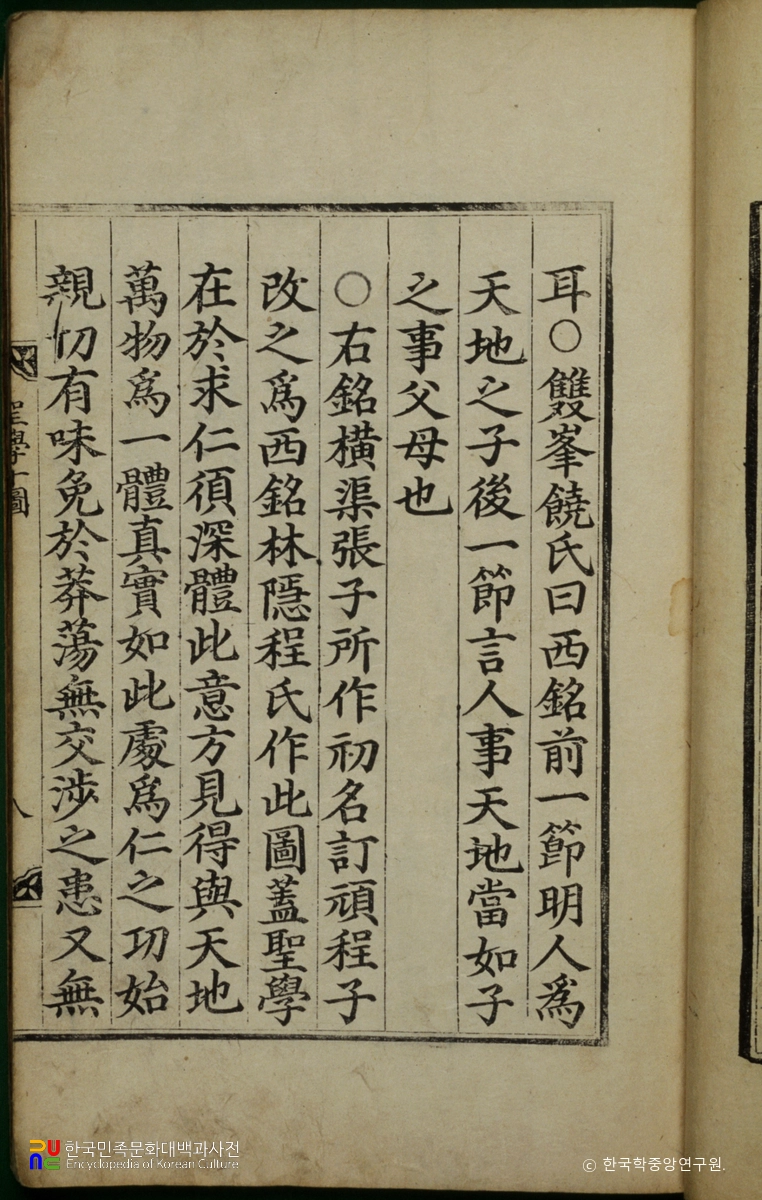 耳○雙峯饒氏曰西銘前一節明人爲
天地之子後一節言人事天地當如子
之事父母也
○右銘橫渠張子所作初名訂頑程子
改之爲西銘林隱程氏作此圖蓋聖學
在於求仁須深體此意方見得與天地
萬物爲一體真實如此處爲仁之功始
親切有味免於莽蕩無交涉之患又無
聖學十圖
八
한국민족문화대백과사전
Encyclopedia of Korean Culture
ⓒ 한국학중앙연구원.